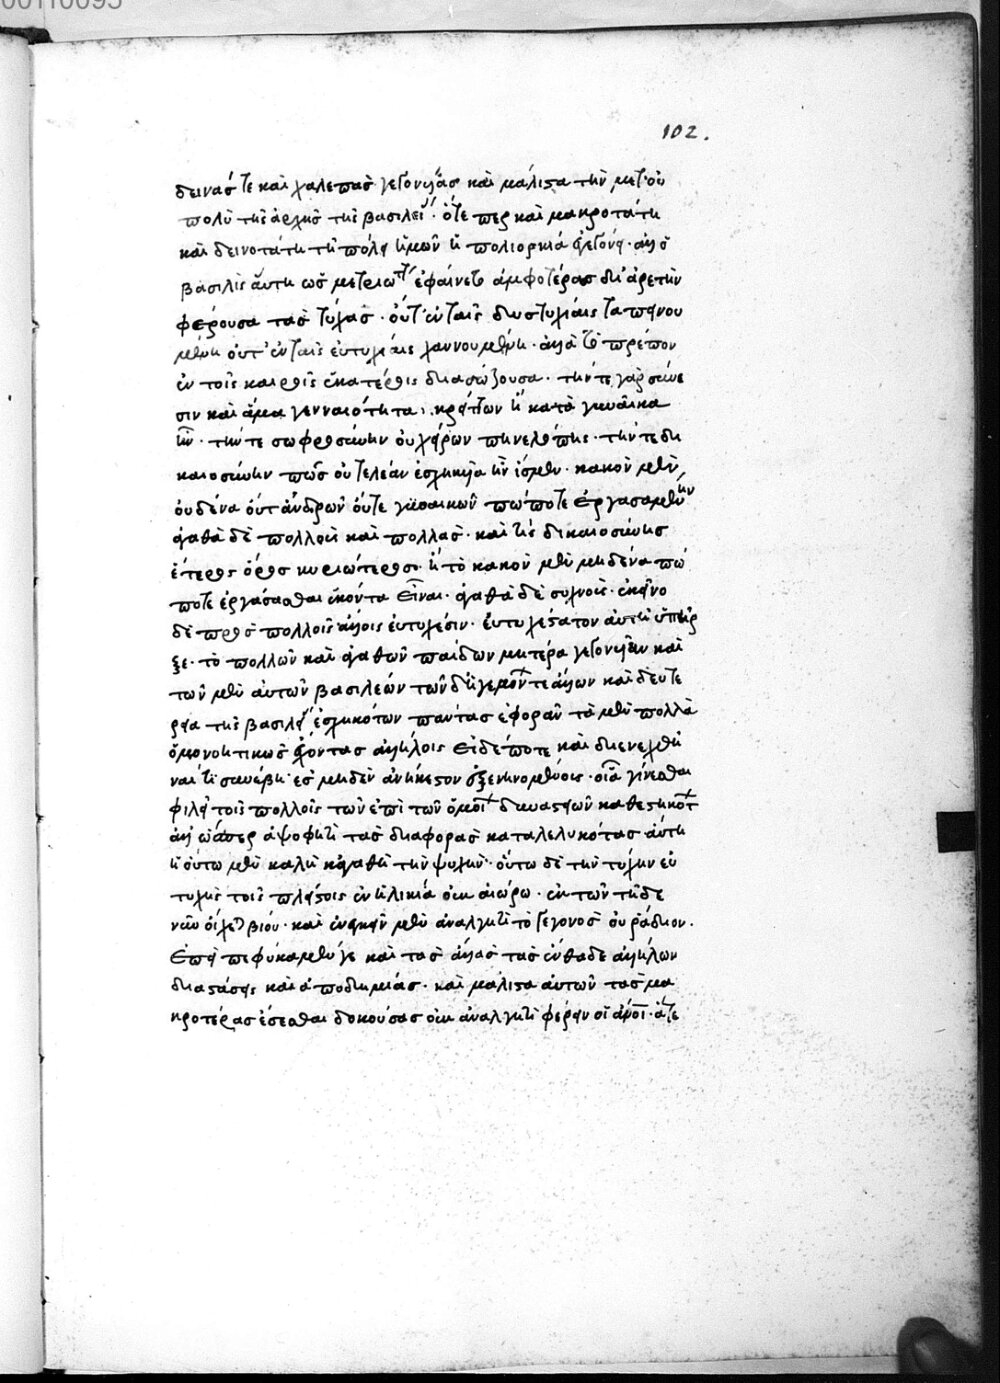 00110095
102.
δεινάς τε καὶ χαλεπὰς γεγονυίας καὶ μάλιστα τὴν μετ' οὐ
πολὺ τῆς ἀρχῆς τῆς βασιλεί. ὅτε περ καὶ μακροτάτη
καὶ δεινοτάτη τῇ πόλει ἡμῶν ἡ πολιορκία ἐγεγόνει. ἀλλ' ἡ
βασιλὶς αὕτη ὡς μετριώτ ἐφαίνετο ἀμφοτέρας δι' ἀρετὴν
φέρουσα τὰς τύχας. οὔτ' ἐν ταῖς δυστυχίαις ταπεινου
μένη οὔτ' ἐν ταῖς εὐτυχίαις χαυνουμένη. ἀλλὰ τὸ πρέπον
ἐν τοῖς καιροῖς ἑκατέροις διασώζουσα. τήν τε γὰρ σύνε
σιν καὶ ἅμα γενναιότητα, κρείττων ἢ κατὰ γυναῖκα
ἦν. τήν τε σωφροσύνην οὐ χείρων πηνελόπης. τήν τε δι
καιοσύνην πῶς οὐ τελέαν ἐσχηκυῖα ἦν ἴσμεν. κακὸν μὲν
οὐδένα οὔτ' ἀνδρῶν οὔτε γυναικῶν πώποτε ἐργασαμένην
ἀγαθὰ δὲ πολλοὺς καὶ πολλάς. καὶ τίς δικαιοσύνης
ἕτερος ὅρος κυριώτερος. ἢ τὸ κακὸν μὲν μηδένα πώ
ποτε ἐργάσασθαι ἑκόντα εἶναι. ἀγαθὰ δὲ συχνούς. ἐκεῖνο
δὲ πρὸς πολλοῖς ἄλλοις εὐτυχέσιν. εὐτυχέστατον αὐτῇ ὑπῆρ
ξε. τὸ πολλῶν καὶ ἀγαθῶν παίδων μητέρα γεγονυῖαν καὶ
τῶν μὲν αὐτῶν βασιλέων τῶν δ' ἡγεμόν τε ἄλλων καὶ δευτε
ρεῖα τῆς βασιλεί ἐσχηκότων πάντας ἐφορᾶν τὰ μὲν πολλὰ
ὁμονοητικῶς ἔχοντας ἀλλήλοις εἰ δέ ποτε καὶ διενεχθῆ
ναί τι συνέβη. ἐς μηδὲν ἀνήκεστον ἐξενηνεγμένους. οἷα γίνεσθαι
φιλεῖ τοῖς πολλοῖς τῶν ἐπὶ τῶν ὁμοί δυναστειῶν καθεστηκότ
ἀλλ' ὥσπερ ἀψοφητὶ τὰς διαφορὰς καταλελυκότας αὕτη
ἡ οὕτω μὲν καλὴ κἀγαθὴ τὴν ψυχὴν. οὕτω δὲ τὴν τύχην εὐ
τυχὴς τοῖς πλείστοις ἐν ἡλικίᾳ οὐκ ἀώρῳ. ἐκ τῶν τῇδε
νῦν οἴχετ βίου. καὶ ἐνεγκεῖν μὲν ἀναλγητὶ τὸ γεγονὸς οὐ ῥᾴδιον.
ἐπεὶ πεφύκαμέν γε καὶ τὰς ἄλλας τὰς ἐνθάδε ἀλλήλων
διαστάσεις καὶ ἀποδημίας. καὶ μάλιστα αὐτῶν τὰς μα
κροτέρας ἔσεσθαι δοκούσας οὐκ ἀναλγητὶ φέρειν οἱ ἄνοι. ἅτε